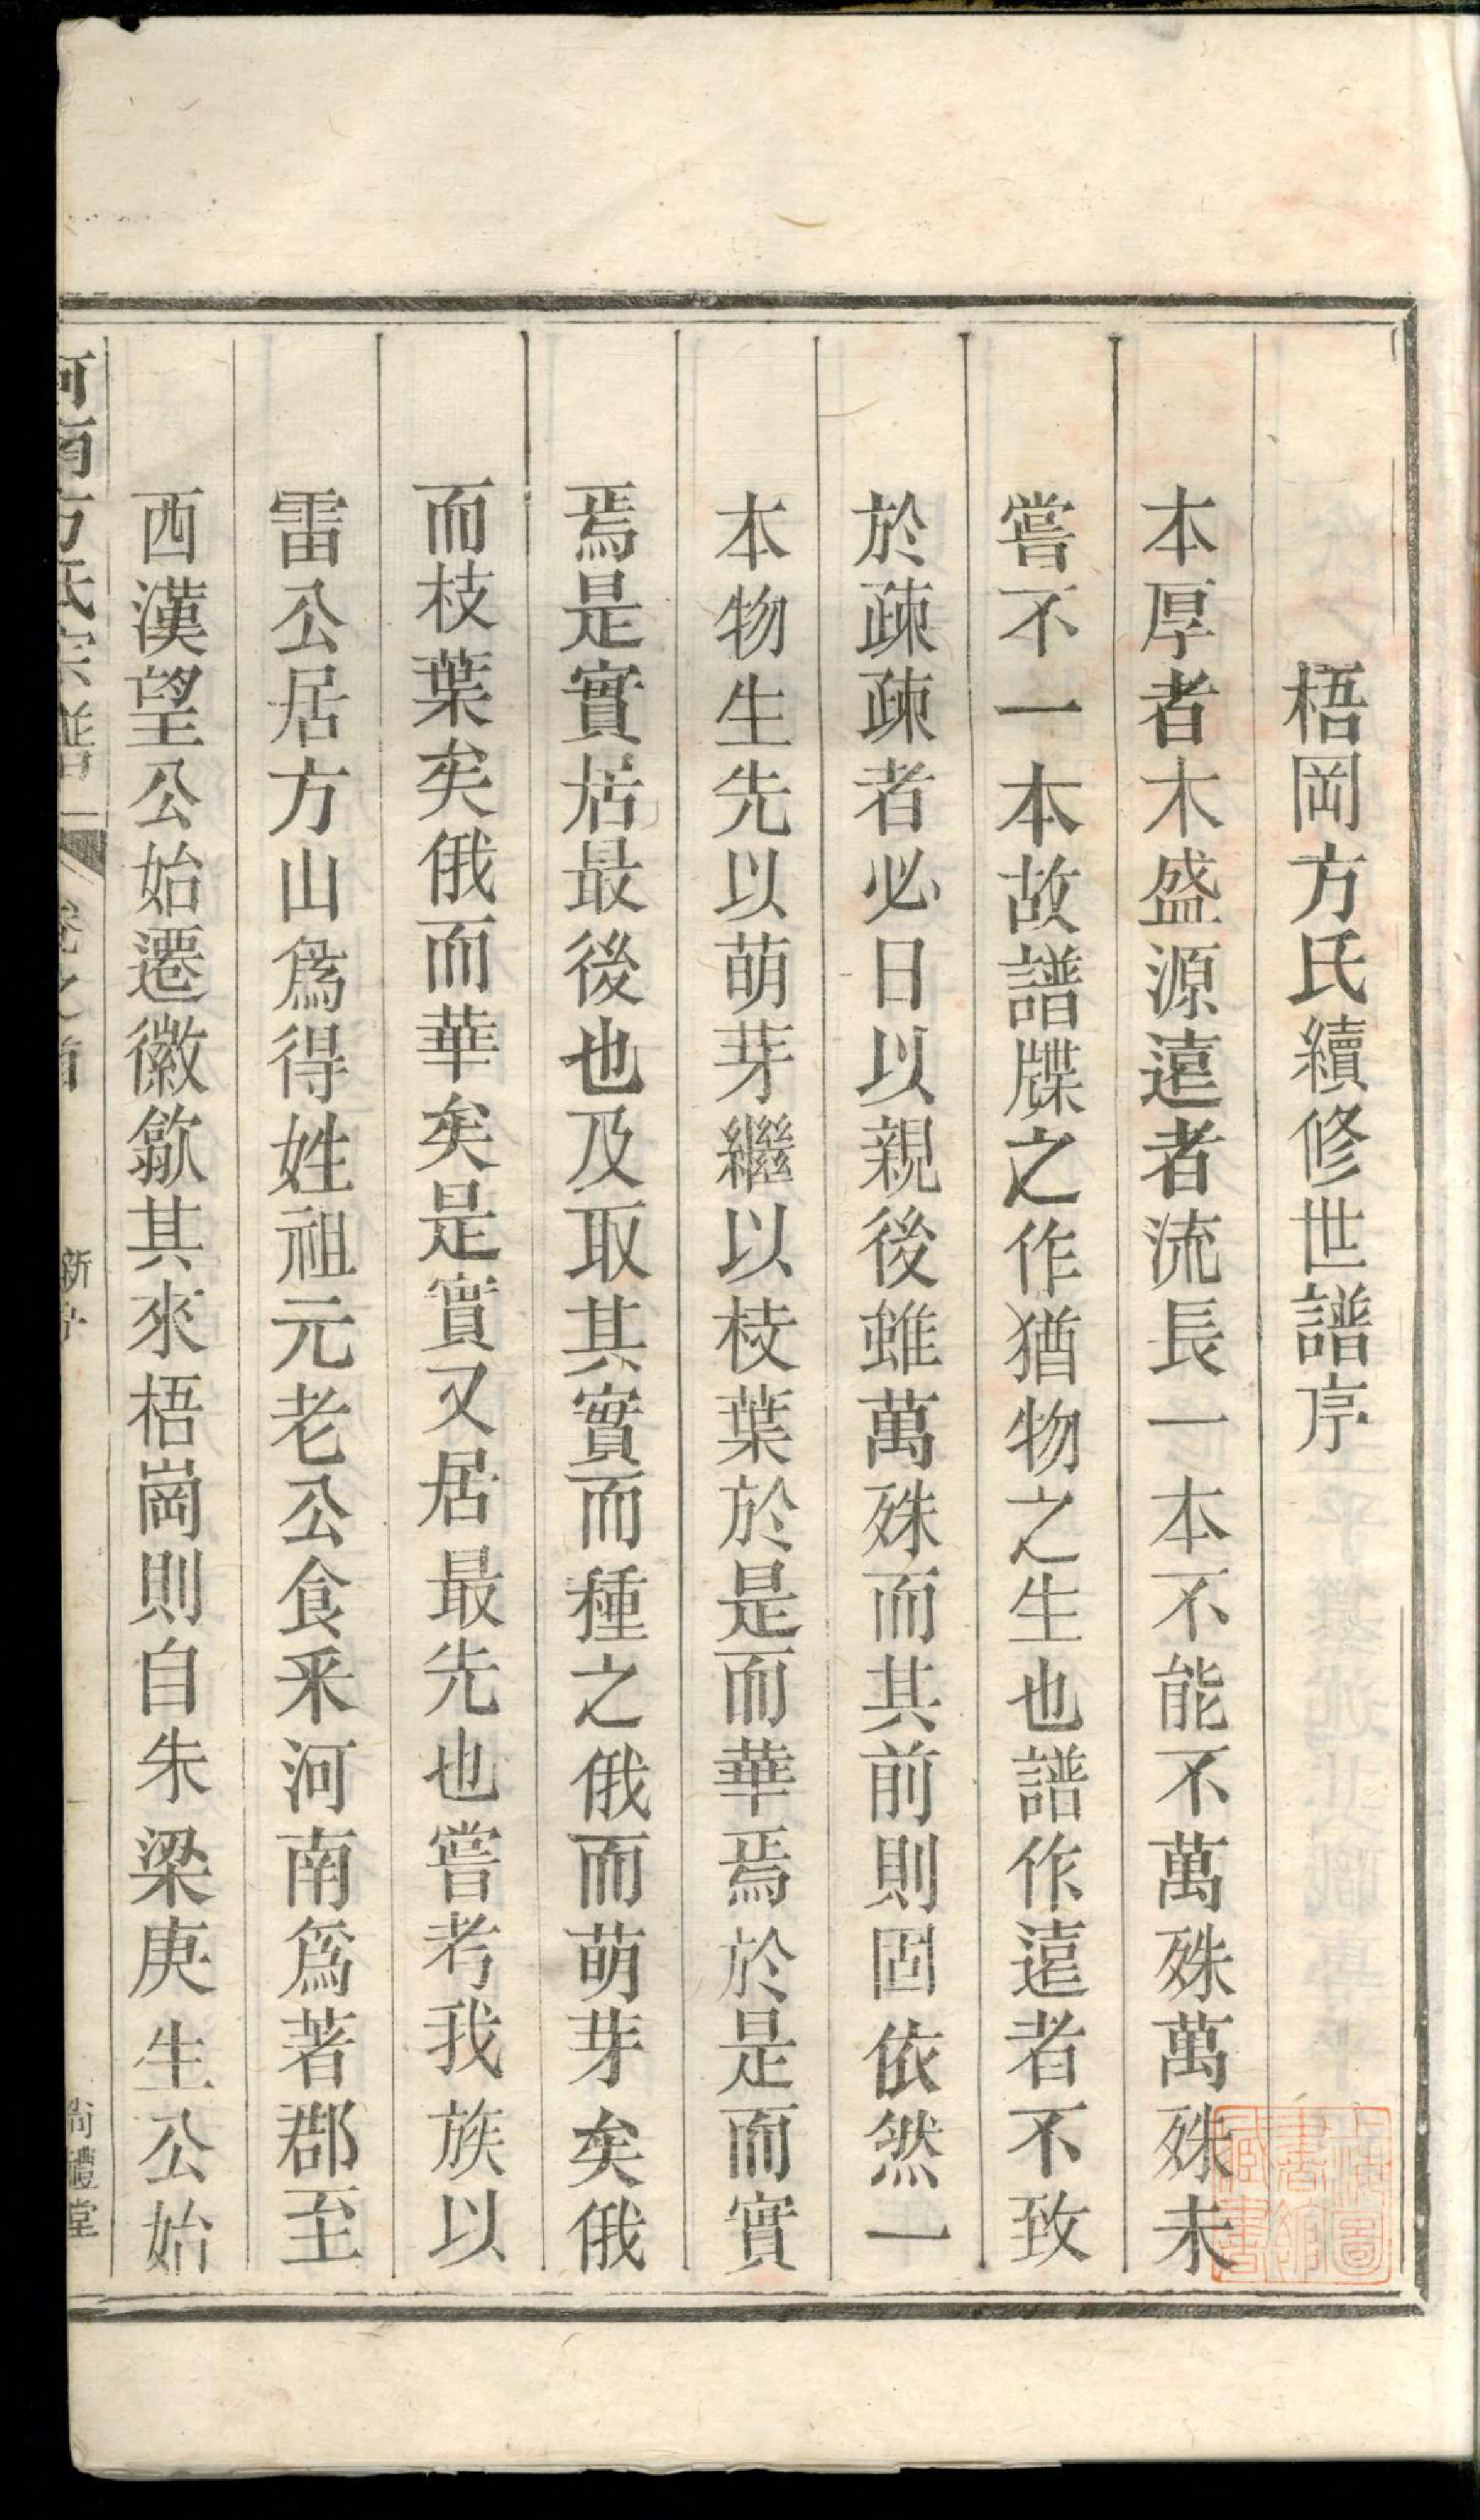 梧岡方氏續修世譜序
本厚者木盛源遠者流長一本不能不萬殊萬殊未
嘗不一本故譜牒之作猶物之生也譜作遠者不致
於疎疎者必日以親後雖萬殊而其前則固依然一
本物生先以萌芽繼以枝葉於是而華焉於是而實
焉是實居最後也及取其實而種之俄而萌芽矣俄
而枝葉矣俄而華矣是實又居最先也嘗考我族以
雷公居方山爲得姓祖元老公食釆河南爲著郡至
西漢望公始遷徽歙其來梧崗則自朱梁庚生公始
河南方氏宗譜
卷之首
新序
尚禮堂
上海圖書館藏書